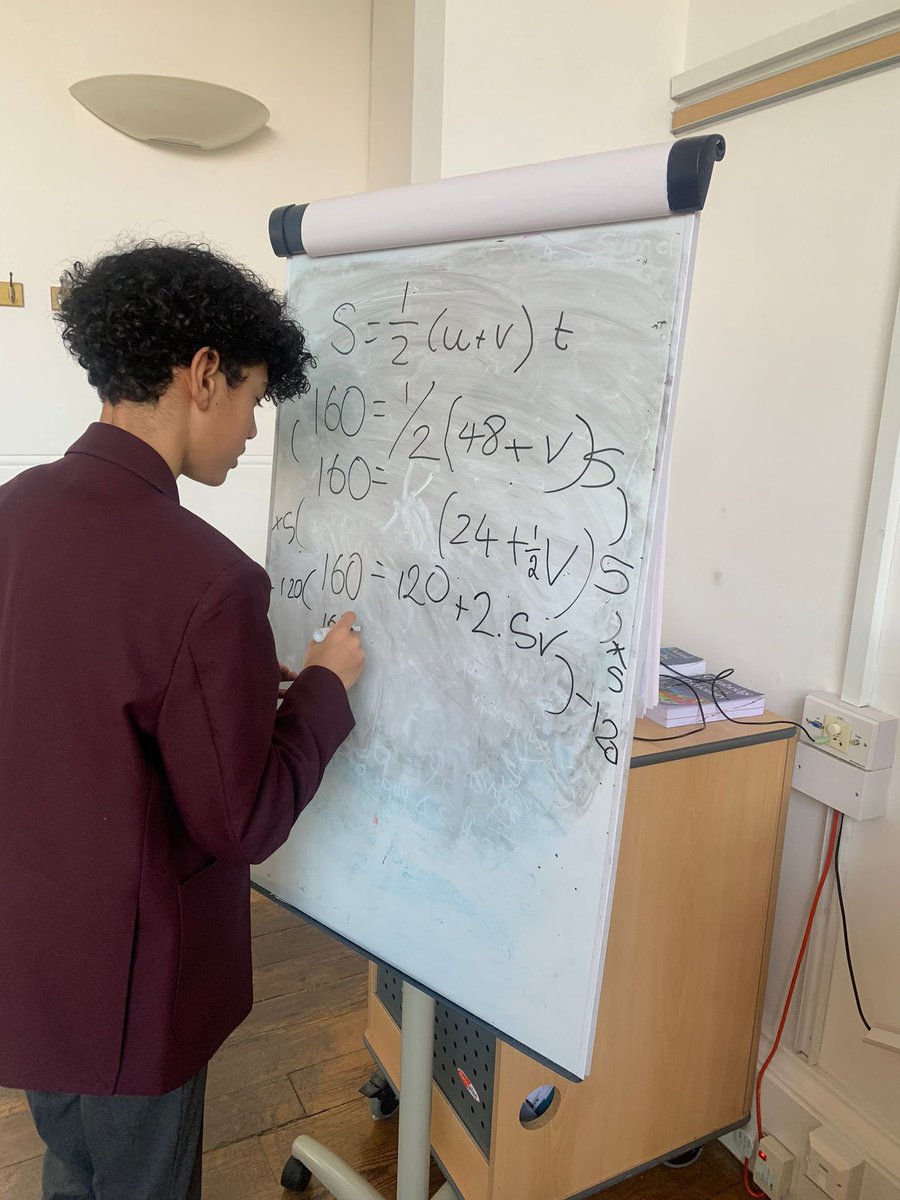 S = 1/2 (u+v) t
( 160 = 1/2 (48 + V) 5 )
160 = (24 + 1/2 V) 5
×5( ) ×5
160 = 120 + 2.5v
- 120( ) - 120